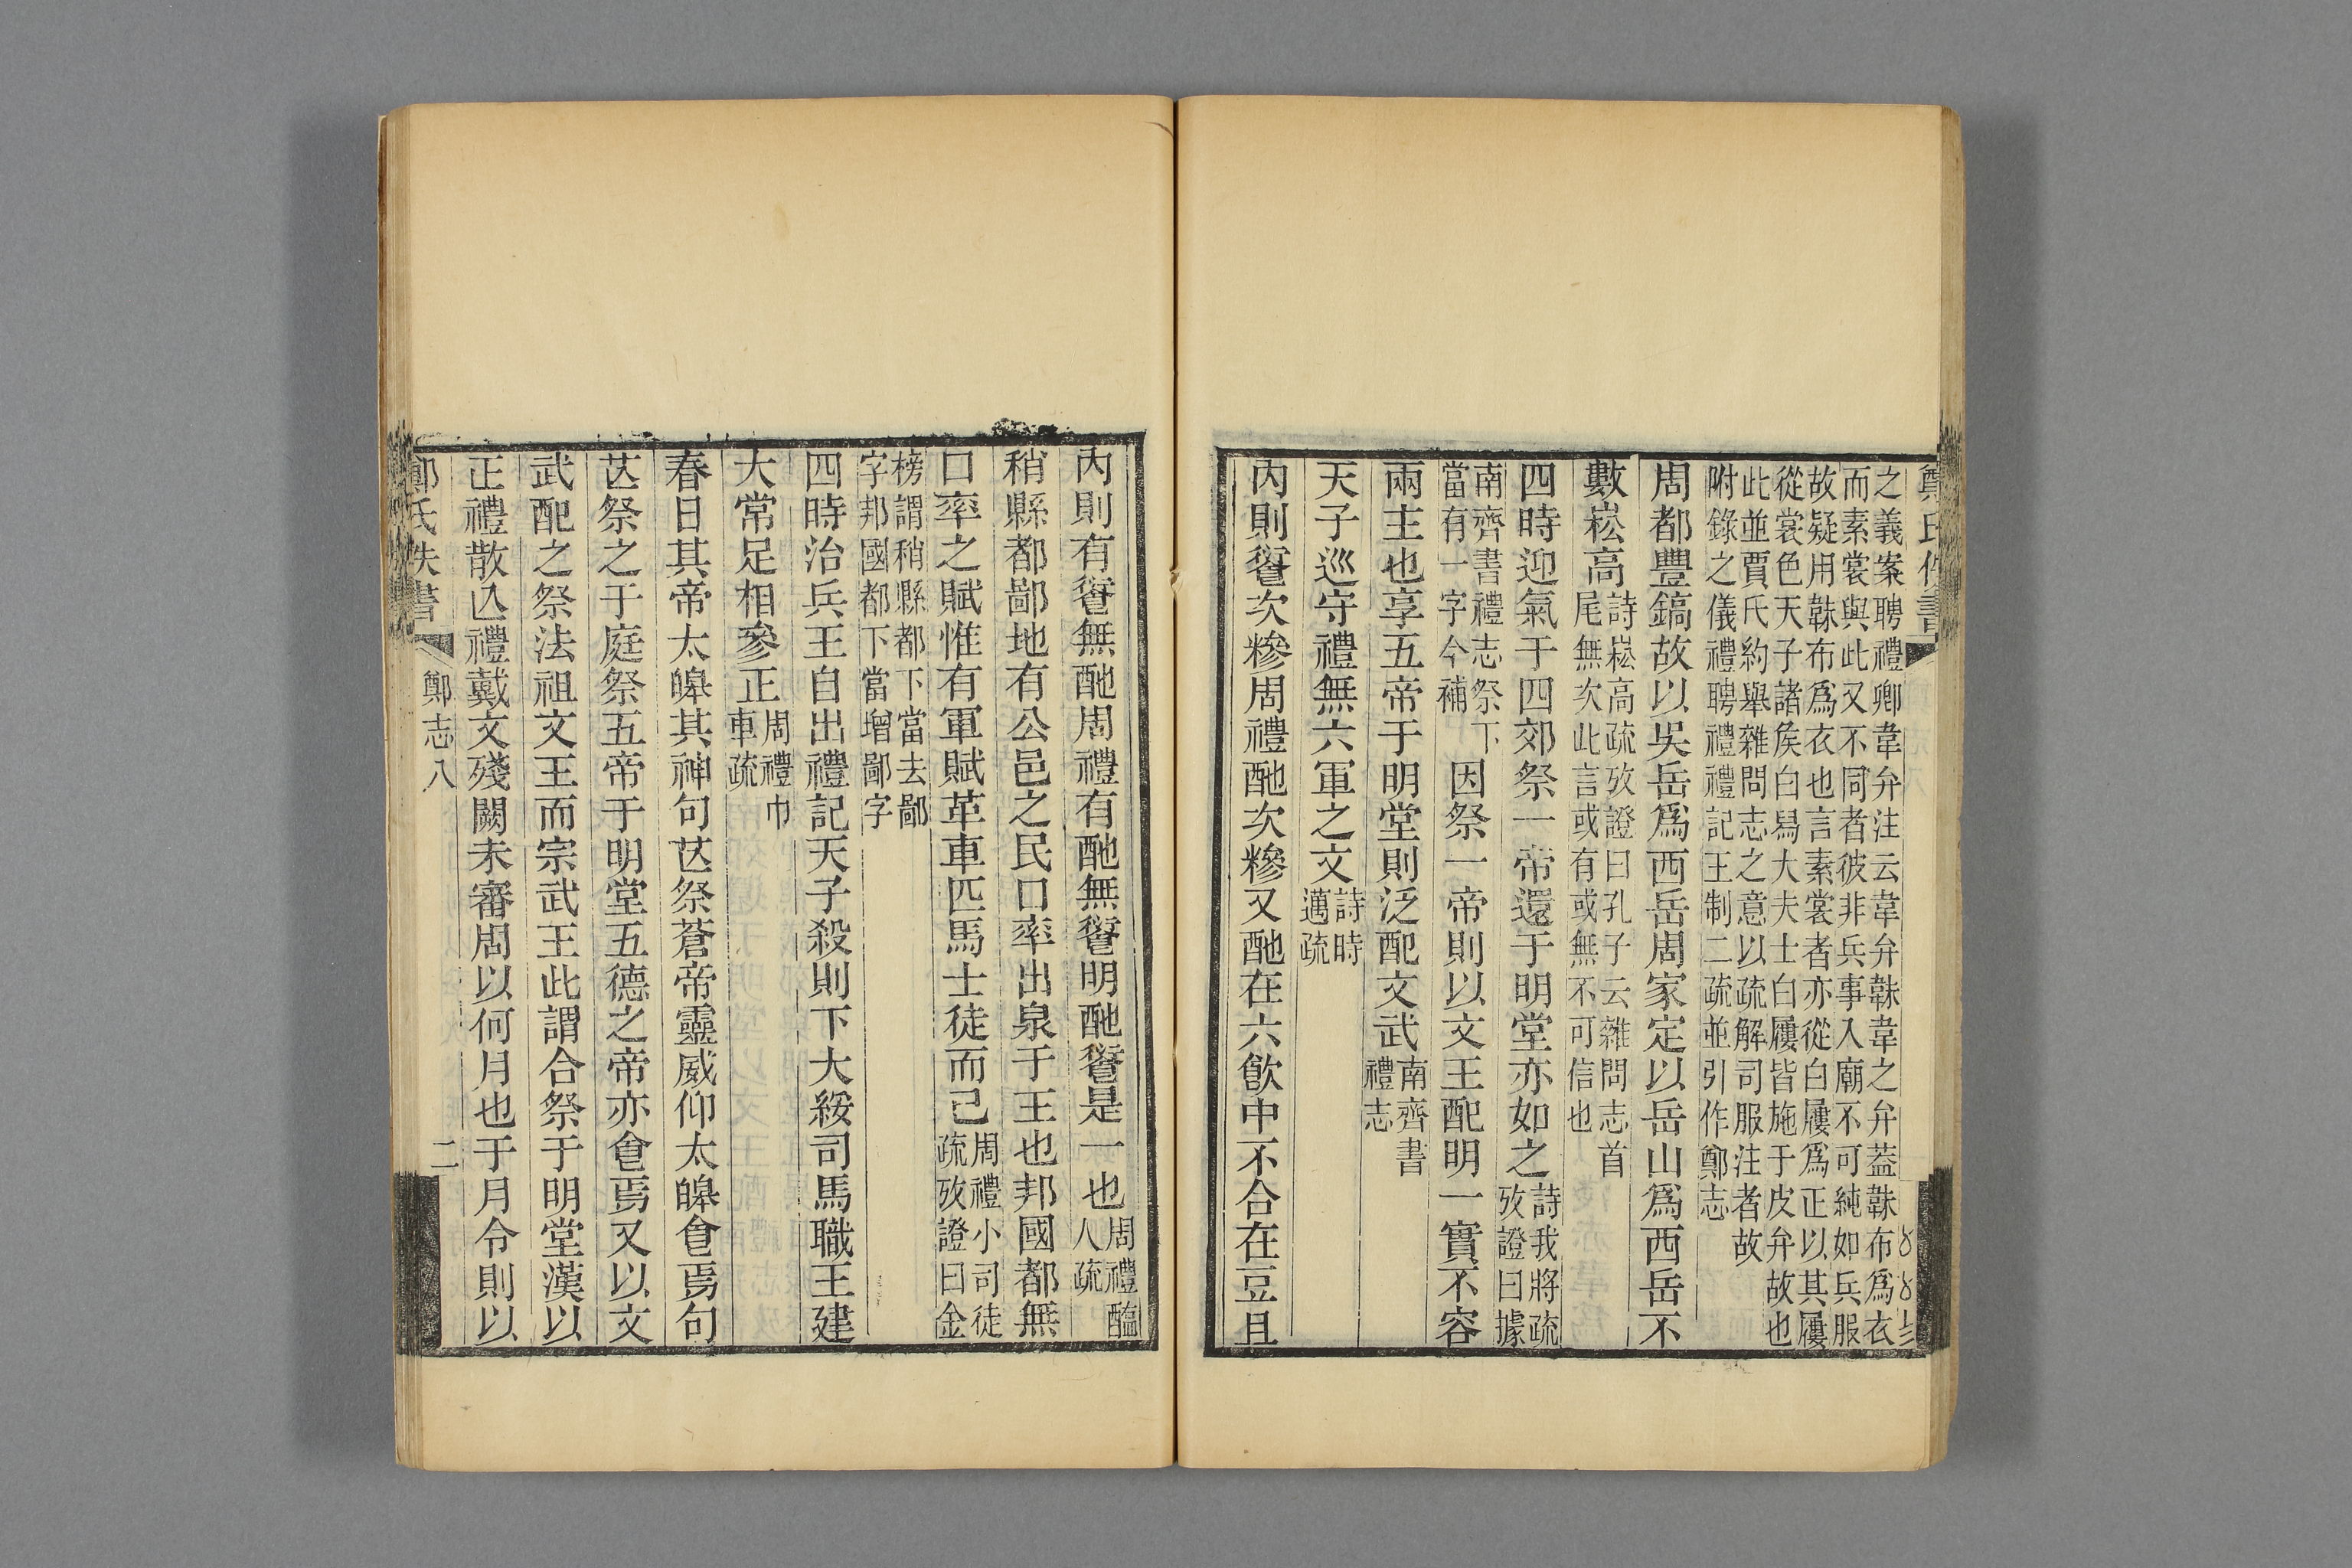 鄭氏佚書
之義案聘禮卿韋弁注云韋弁韎韋之弁蓋韎布爲衣
而素裳與此又不同者彼非兵事入廟不可純如兵服
故疑用韎布爲衣也言素裳者亦從白屨爲正以其屨
從裳色天子諸矦白舄大夫士白屨皆施于皮弁故也
此並賈氏約舉雜問志之意以疏解司服注者故
附錄之儀禮聘禮禮記王制二疏並引作鄭志
周都豐鎬故以吳岳爲西岳周家定以岳山爲西岳不
數崧高
詩崧高疏攷證曰孔子云雜問志首
尾無次此言或有或無不可信也
四時迎氣于四郊祭一帝還于明堂亦如之
詩我將疏
攷證曰據
南齊書禮志祭下
當有一字今補
因祭一帝則以文王配明一實不容
兩主也享五帝于明堂則泛配文武
南齊書
禮志
天子巡守禮無六軍之文
詩時
邁疏
內則䬳次糝周禮酏次糝又酏在六飲中不合在豆且
內則有䬳無酏周禮有酏無䬳明酏䬳是一也
周禮醢
人疏
稍縣都鄙地有公邑之民口率出泉于王也邦國都無
口率之賦惟有軍賦革車匹馬士徒而已
周禮小司徒
疏攷證曰金
榜謂稍縣都下當去鄙
字邦國都下當增鄙字
四時治兵王自出禮記天子殺則下大綏司馬職王建
大常足相參正
周禮巾
車疏
春日其帝太皞其神句芒祭蒼帝靈威仰太皞食焉句
芒祭之于庭祭五帝于明堂五德之帝亦食焉又以文
武配之祭法祖文王而宗武王此謂合祭于明堂漢以
正禮散亾禮戴文殘闕未審周以何月也于月令則以
鄭氏佚書
鄭志八
二